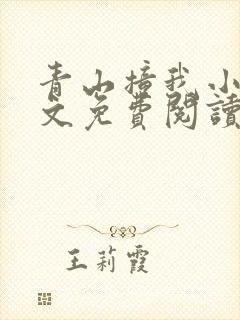 青山撞我小
文免費閱讀
王莉霞